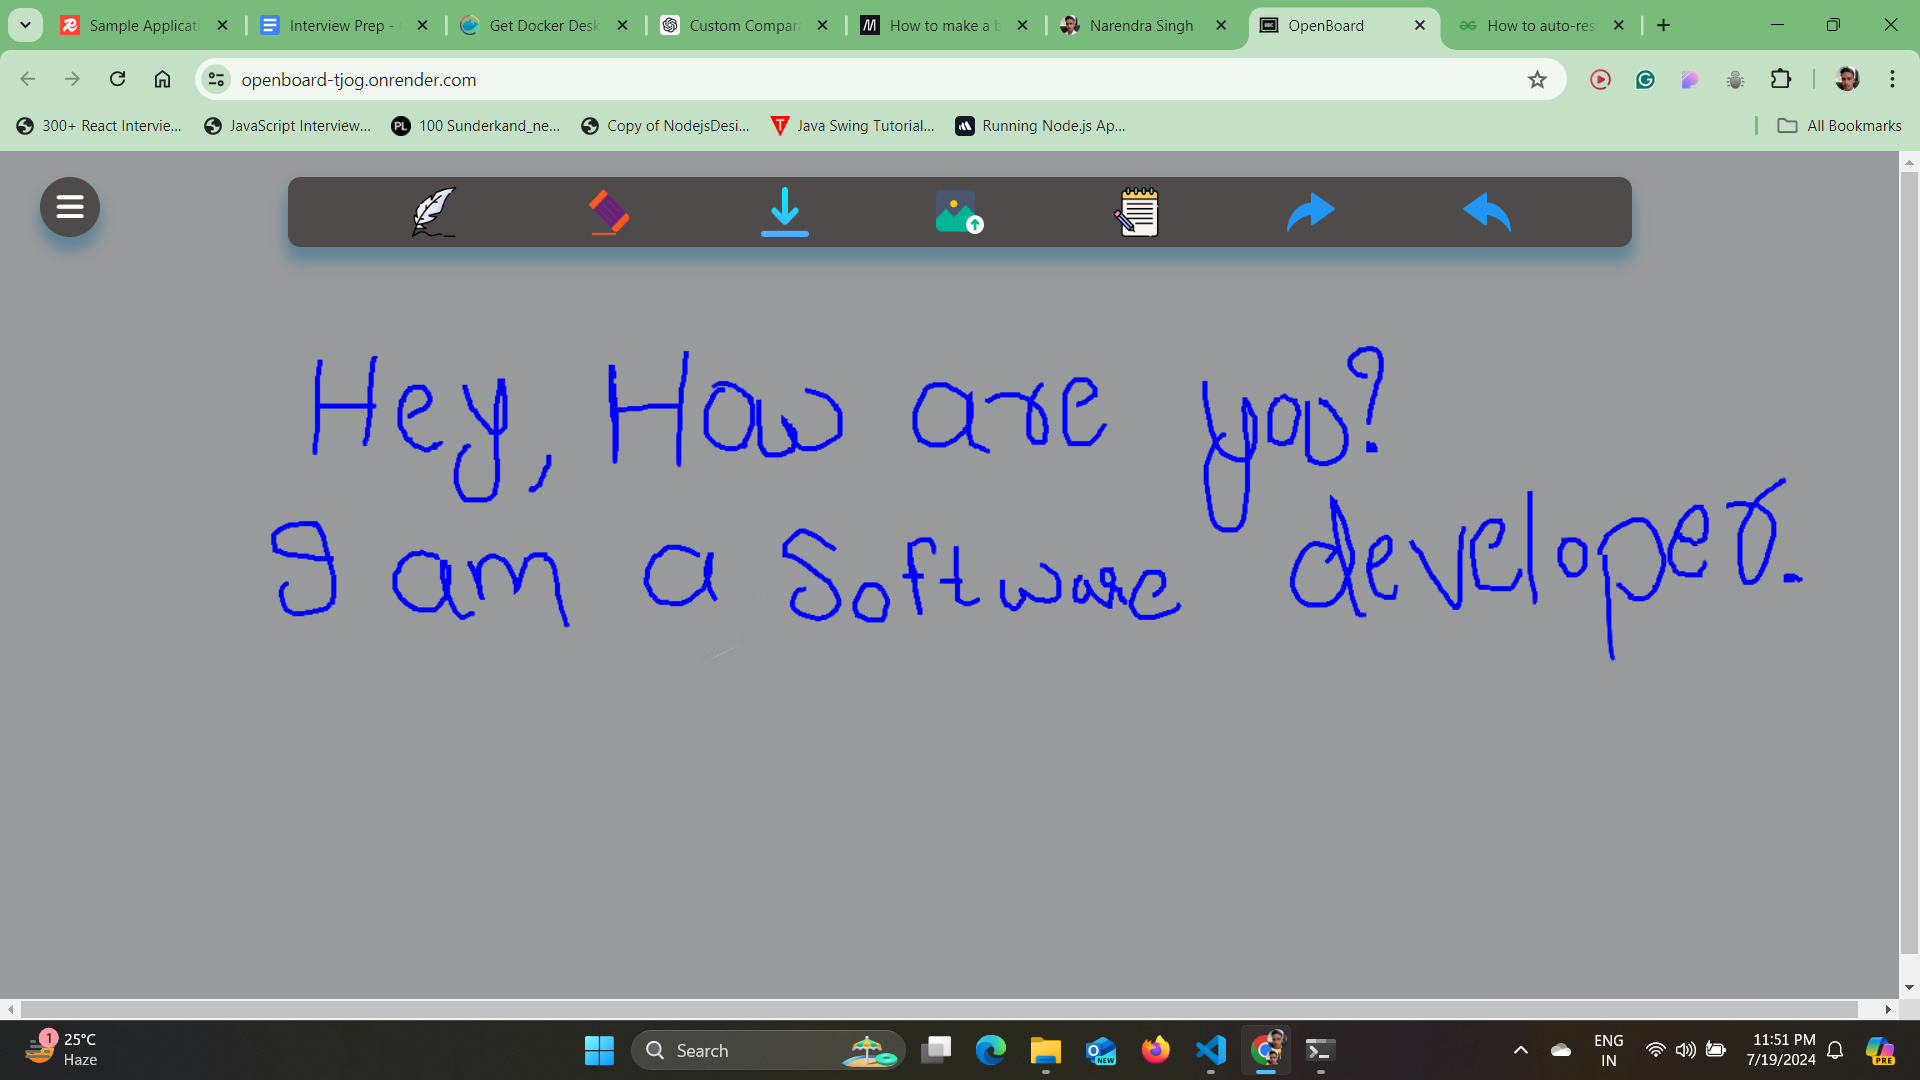 Sample Applicati
Interview Prep -
Get Docker Desk
Custom Compara
How to make a b
Narendra Singh
OpenBoard
How to auto-res
openboard-tjog.onrender.com
300+ React Intervie...
JavaScript Interview...
PL
100 Sunderkand_ne...
Copy of NodejsDesi...
Java Swing Tutorial...
Running Node.js Ap...
All Bookmarks
Hey, How are you?
I am a Software developer.
1
25°C
Haze
Search
NEW
ENG
IN
11:51 PM
7/19/2024
PRE